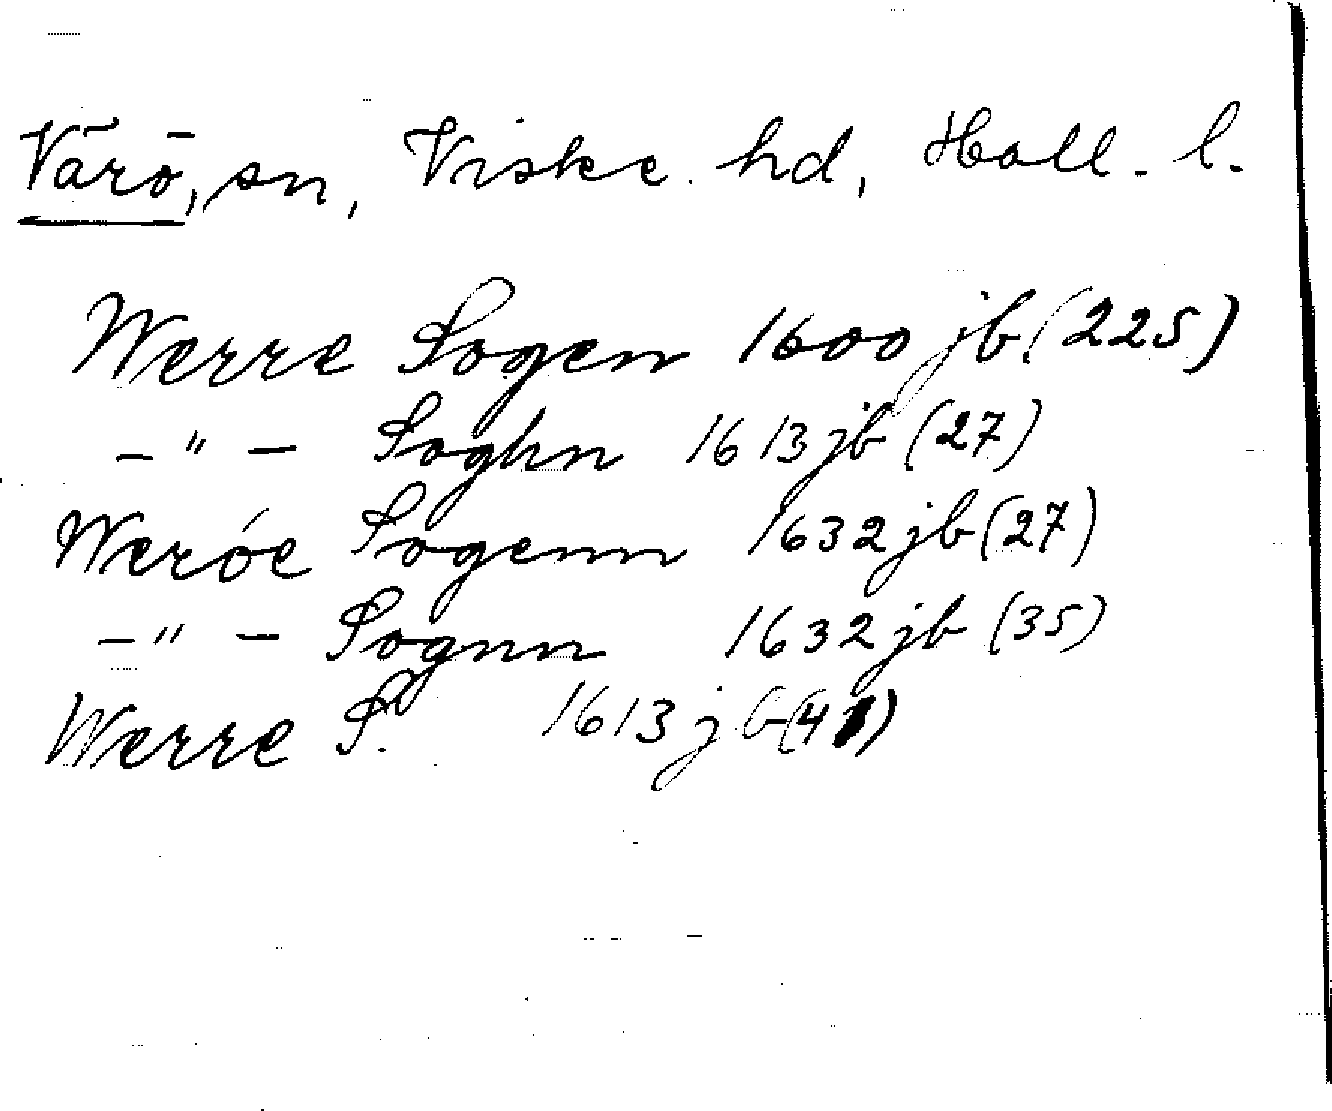 Värö, sn, Viske hd, Hall. l.
Werre Sogen 1600 jb (225)
-"- Soghn 1613 jb (27)
Weróe Sogenn 1632 jb (27)
-"- Sognn 1632 jb (35)
Werre S. 1613 jb (41)